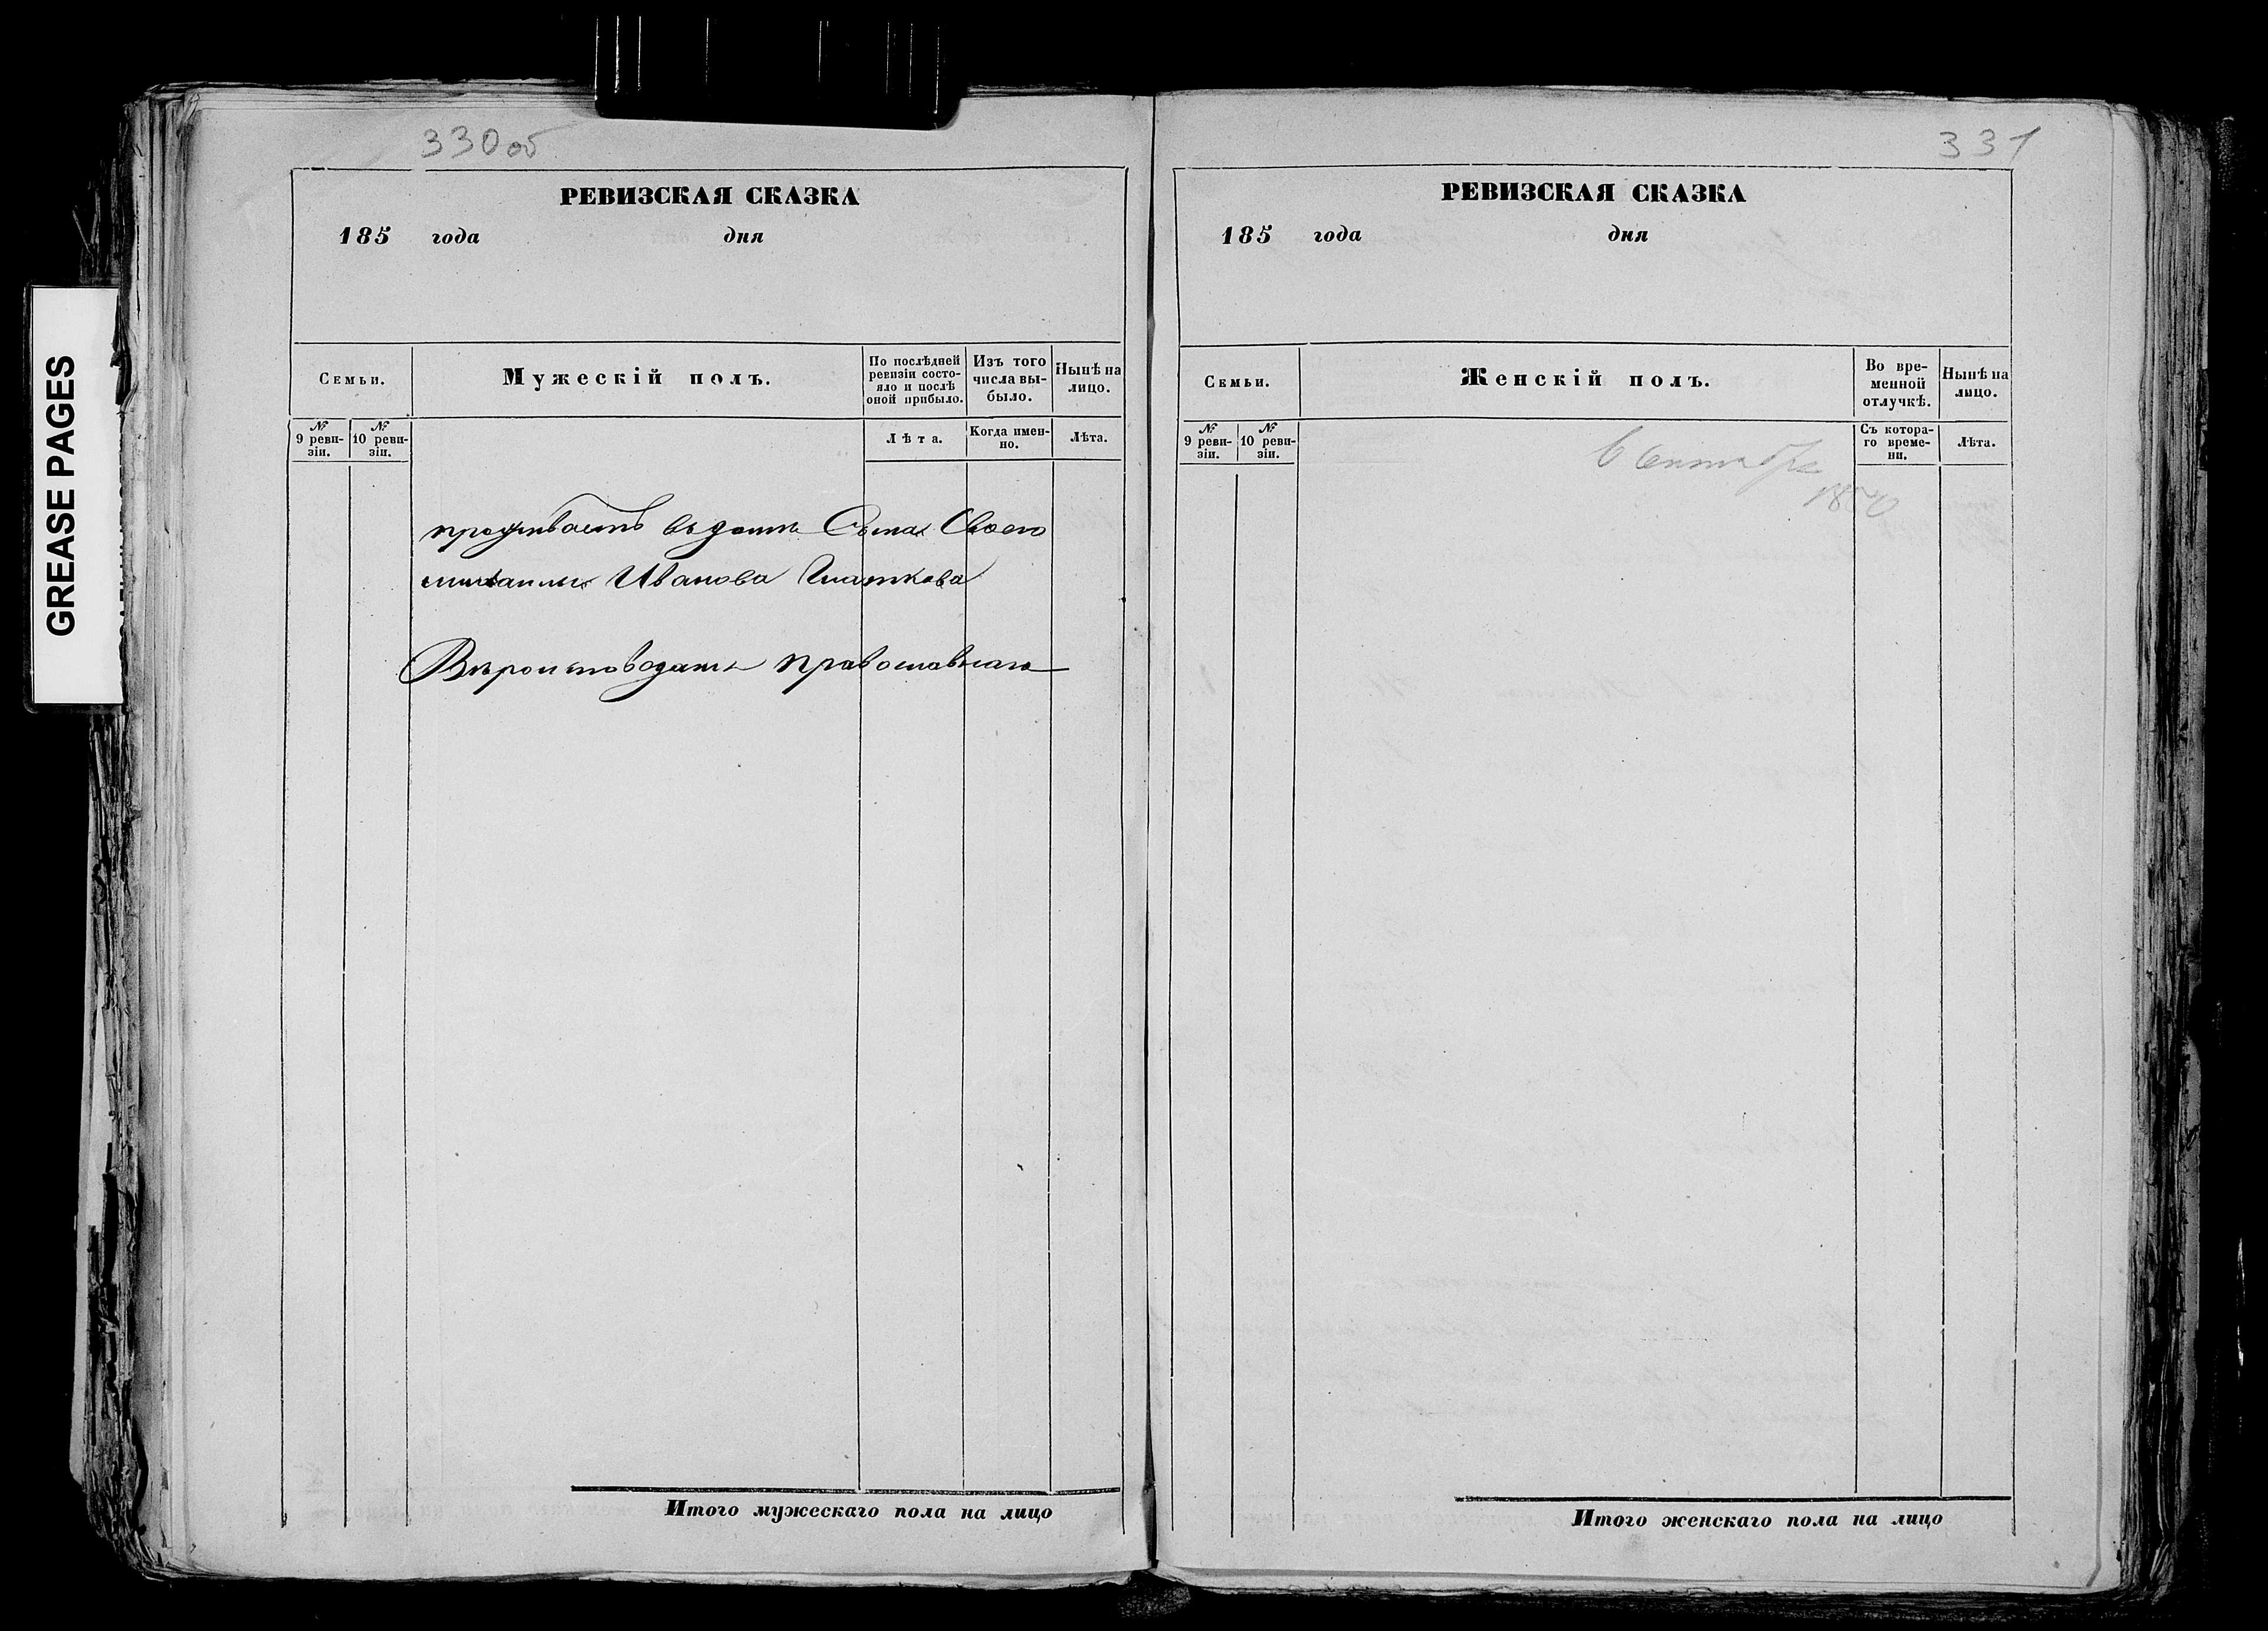 GREASE PAGES
330 об
РЕВИЗСКАЯ СКАЗКА
185 года дня
Семьи.
Мужескій полъ.
По послѣдней ревизіи состояло и послѣ оной прибыло.
Изъ того числа выбыло.
Нынѣ на лицо.
№ 9 ревизіи.
№ 10 ревизіи.
Лѣта.
Когда именно.
Лѣта.
проживаетъ въ доме Сына Своего
михаилы Иванова
Вѣроисповеданія православнаго
Итого мужескаго пола на лицо
331
РЕВИЗСКАЯ СКАЗКА
185 года дня
Семьи.
Женскій полъ.
Во временной отлучкѣ.
Нынѣ на лицо.
№ 9 ревизіи.
№ 10 ревизіи.
Съ котораго времени.
Лѣта.
Итого женскаго пола на лицо